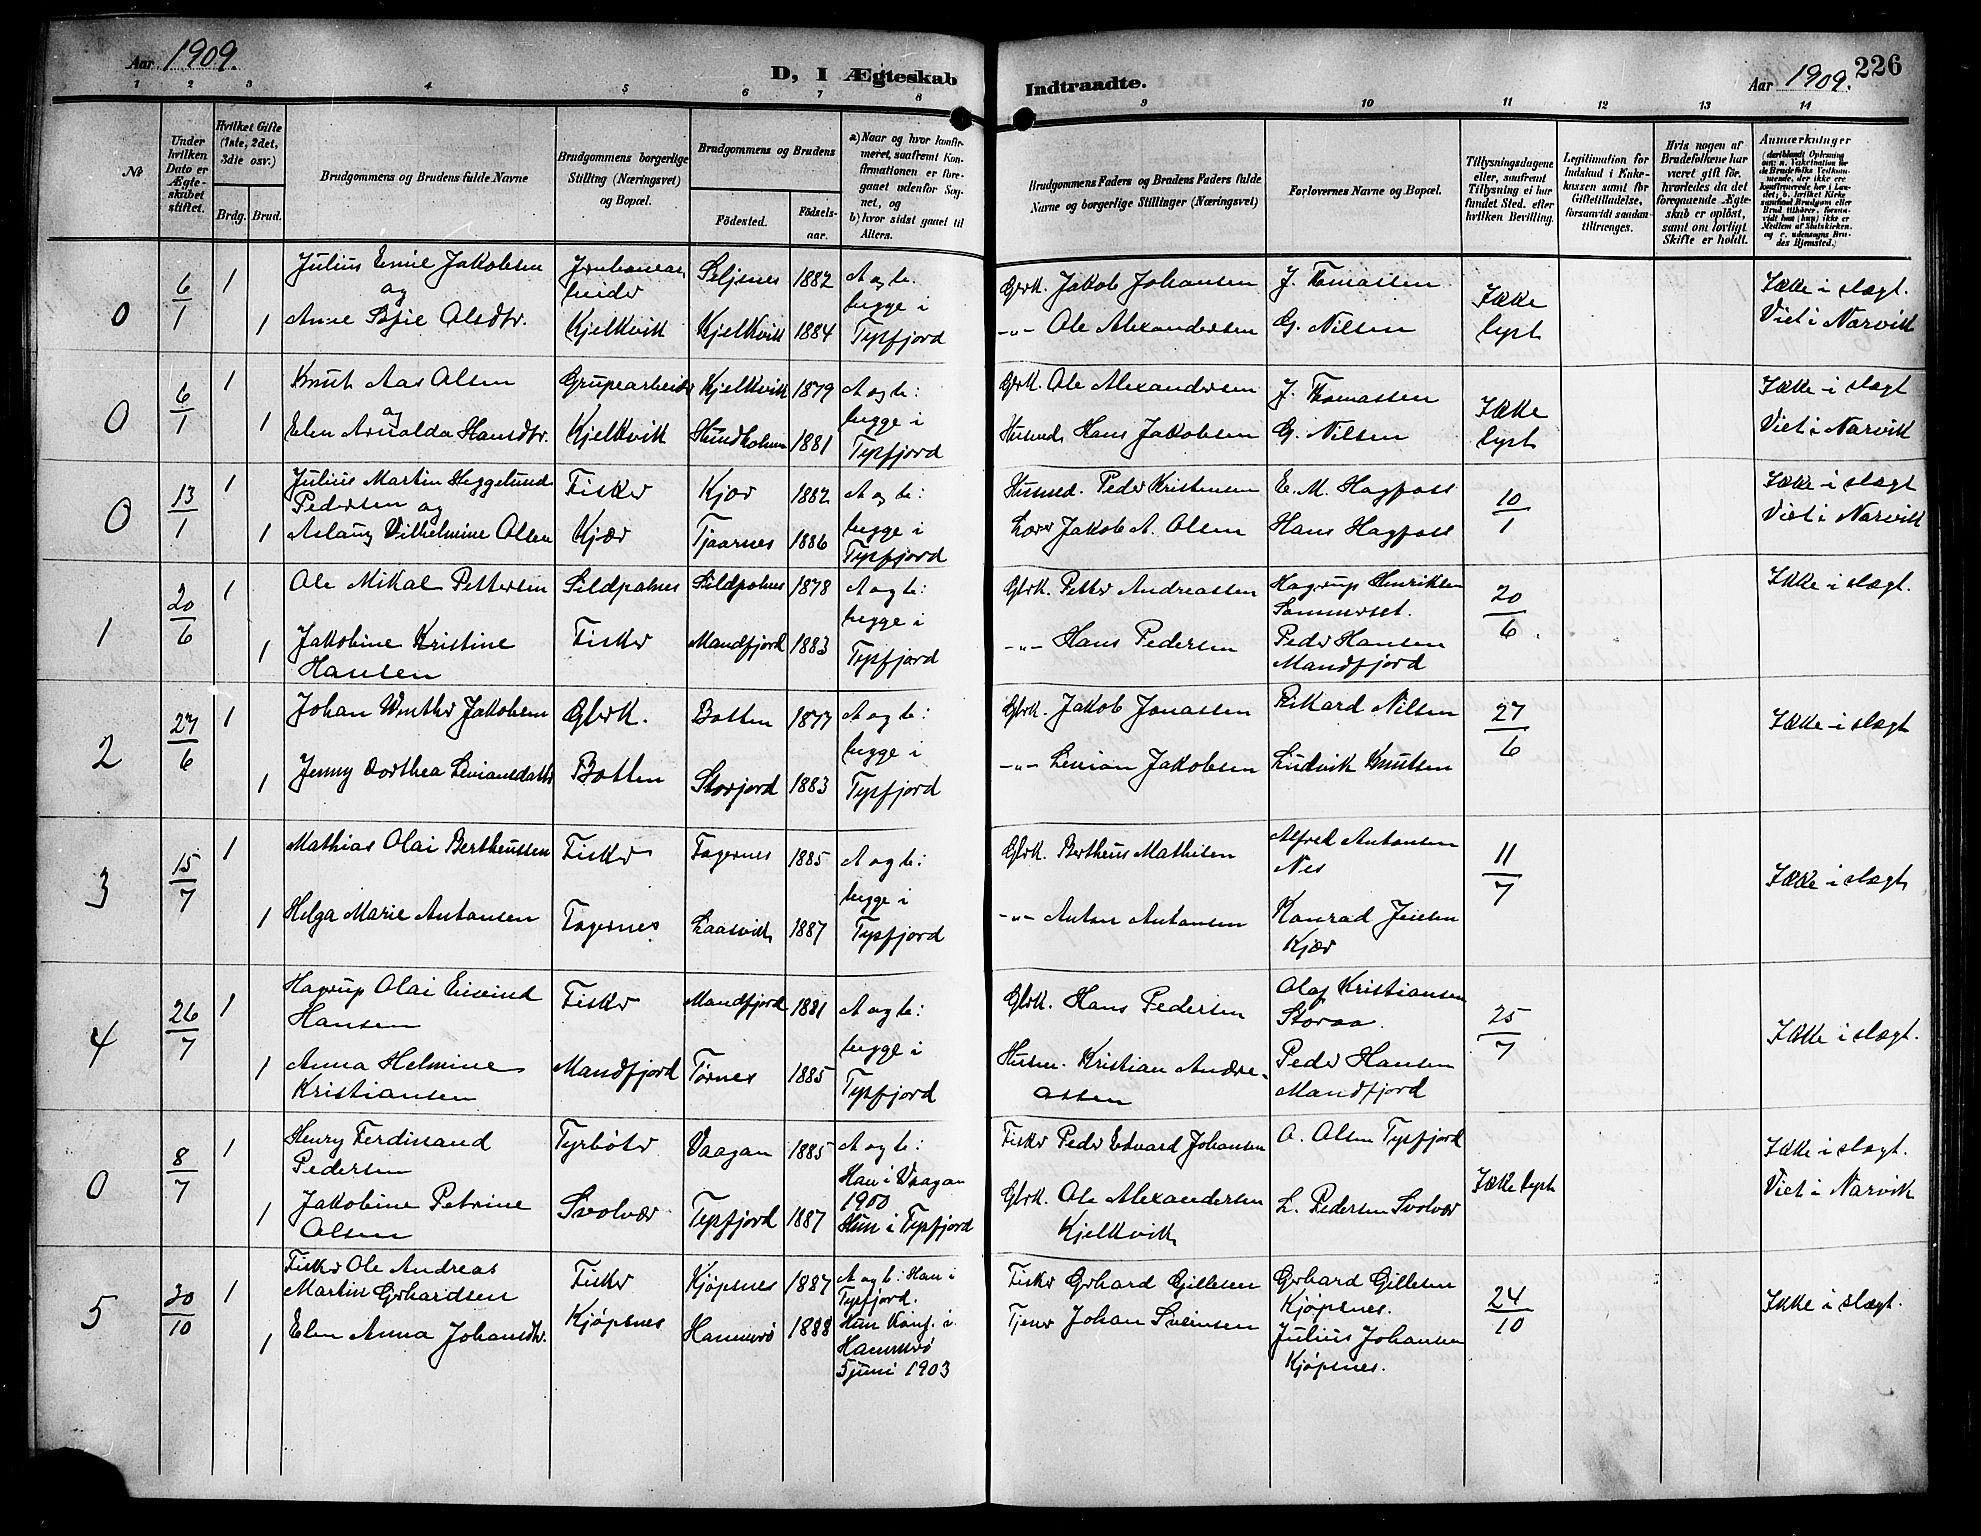 Aar 1909.
D, I Ægteskab
Indtraadte.
Aar 1909.
226
1 2 3 4 5 6 7 8 9 10 11 12 13 14
Nt
Under hvilken Dato er Ægteskabet stiftet.
Hvilket Gifte (1ste, 2det, 3die osv.)
Brdg. Brud.
Brudgommens og Brudens fulde Navne
Brudgommens borgerlige Stilling (Næringsvei) og Bopæl.
Brudgommens og Brudens
Fødested. Fødselsaar.
a) Naar og hvor konfirmeret, saafremt Konfirmationen er foregaaet udenfor Sognet, og
b) hvor sidst gaaet til Alters.
Brudgommens Faders og Brudens Faders fulde Navne og borgerlige Stillinger (Næringsvei)
Forlovernes Navne og Bopæl.
Tillysningsdagene eller, saafremt Tillysning ei har fundet Sted, efter hvilken Bevilling.
Legitimation for Indskud i Enkekassen samt for Giftetilladelse, forsaavidt saadan tiltrænges.
Hvis nogen af Brudefolkene har været gift før, hvorledes da det foregaaende Ægteskab er opløst, samt om lovligt Skifte er holdt.
Anmærkninger
0 6/1 1 Julius Emil Jakobsen Seljenes 1882 A og b:
og
1 Anne Sofie Olsdtr. Kjelkvik Kjelkvik 1884
begge i
Tysfjord
Grbk. Jakob Johansen J. Thomassen
-"- Ole Alexandersen G. Nilsen
Ikke
lyst
Ikke i slægt.
Viet i Narvik
0 6/1 1 Knut Aas Olsen Grupearbeider Kjelkvik 1879 A og b:
og
1 Elen Arnolda Hansdtr. Kjelkvik Hundholmen 1881
begge i
Tysfjord
Grbk. Ole Alexandersen J. Thomassen
Husmd. Hans Jakobsen G. Nilsen
Ikke
lyst
Ikke i slægt
Viet i Narvik
0 13/1 1 Julius Martin Heggelund Fisker Kjær 1882 A og b:
Pedersen og
1 Aslaug Vilhelmine Olsen Kjær Tjaarnes 1886
begge i
Tysfjord
Husmd. Peder Kristensen E. M. Hagfoss
Lærer Jakob A. Olsen Hans Hagfoss
10/1
Ikke i slægt
Viet i Narvik
1 20/6 1 Ole Mikal Pettersen Sildpolnes Sildpolnes 1878 A og b:
1 Jakobine Kristine Fisker Mandfjord 1883
Hansen
begge i
Tysfjord
Gbrk. Petter Andreassen Hagrup Henriksen
Sommerset.
-"- Hans Pedersen Peder Hansen
Mandfjord
20/6.
Ikke i slægt.
2 27/6 1 Johan Winther Jakobsen Gbrk. Botten 1877 A og b:
1 Jenny Dorthea Leviansdatter Botten Storjord 1883
begge i
Tysfjord
Gbrk. Jakob Jonassen Rikard Nilsen
-"- Levion Jakobsen Ludvik Knutsen
27/6
Ikke i slægt
3 15/7 1 Mathias Olai Bertheussen Fisker Fagernes 1885 A og b:
1 Helga Marie Antonsen Fagernes Laasvik 1887
begge i
Tysfjord
Gbrk. Bertheus Mathisen Alfred Antonsen
Nes
-"- Anton Antonsen Konrad Jensen
Kjær
11/7
Ikke i slægt
4 26/7 1 Hagrup Olai Eivind Fisker Mandfjord 1881 A og b:
Hansen
1 Anna Helmine Mandfjord Tørnes 1885
Kristiansen
begge i
Tysfjord
Gbrk. Hans Pedersen Olaf Kristiansen
Storaa.
Husm. Kristian Andre- Peder Hansen
assen Mandfjord
25/7
Ikke i slægt.
0 8/7 1 Henry Ferdinand Fyrbøter Vaagan 1885 A og b:
Pedersen
1 Jakobine Petrine Svolvær Tysfjord 1887
Olsen
Han i Vaagan
1900
Hun i Tysfjord
Fisker Peder Edvard Johansen A. Olsen Tysfjord
Gbrk. Ole Alexandersen L. Pedersen Svolvær
Kjelkvik
Ikke lyst
Ikke i slægt.
Viet i Narvik
5 30/10 1 Fisker Ole Andreas Fisker Kjøpsnes 1887 A og b: Han i
Martin Gerhardsen Tysfjord.
1 Elen Anna Johansdtr. Kjøpsnes Hammerø 1888 Hun konf. i
Hammerø
5 juni 1903
Fisker Gerhard Gillesen Gerhard Gillesen
Kjøpsnes.
Tjener Johan Sveinsen Julius Johansen
Kjøpsnes.
24/10
Ikke i slægt.